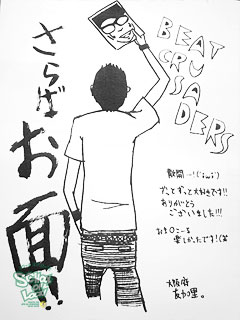 さらば
お面!!
BEAT
CRUSADERS
散開…!
ずっとずっと大好きです!!
ありがとう
ございました!!!
楽しかったです!
大阪府